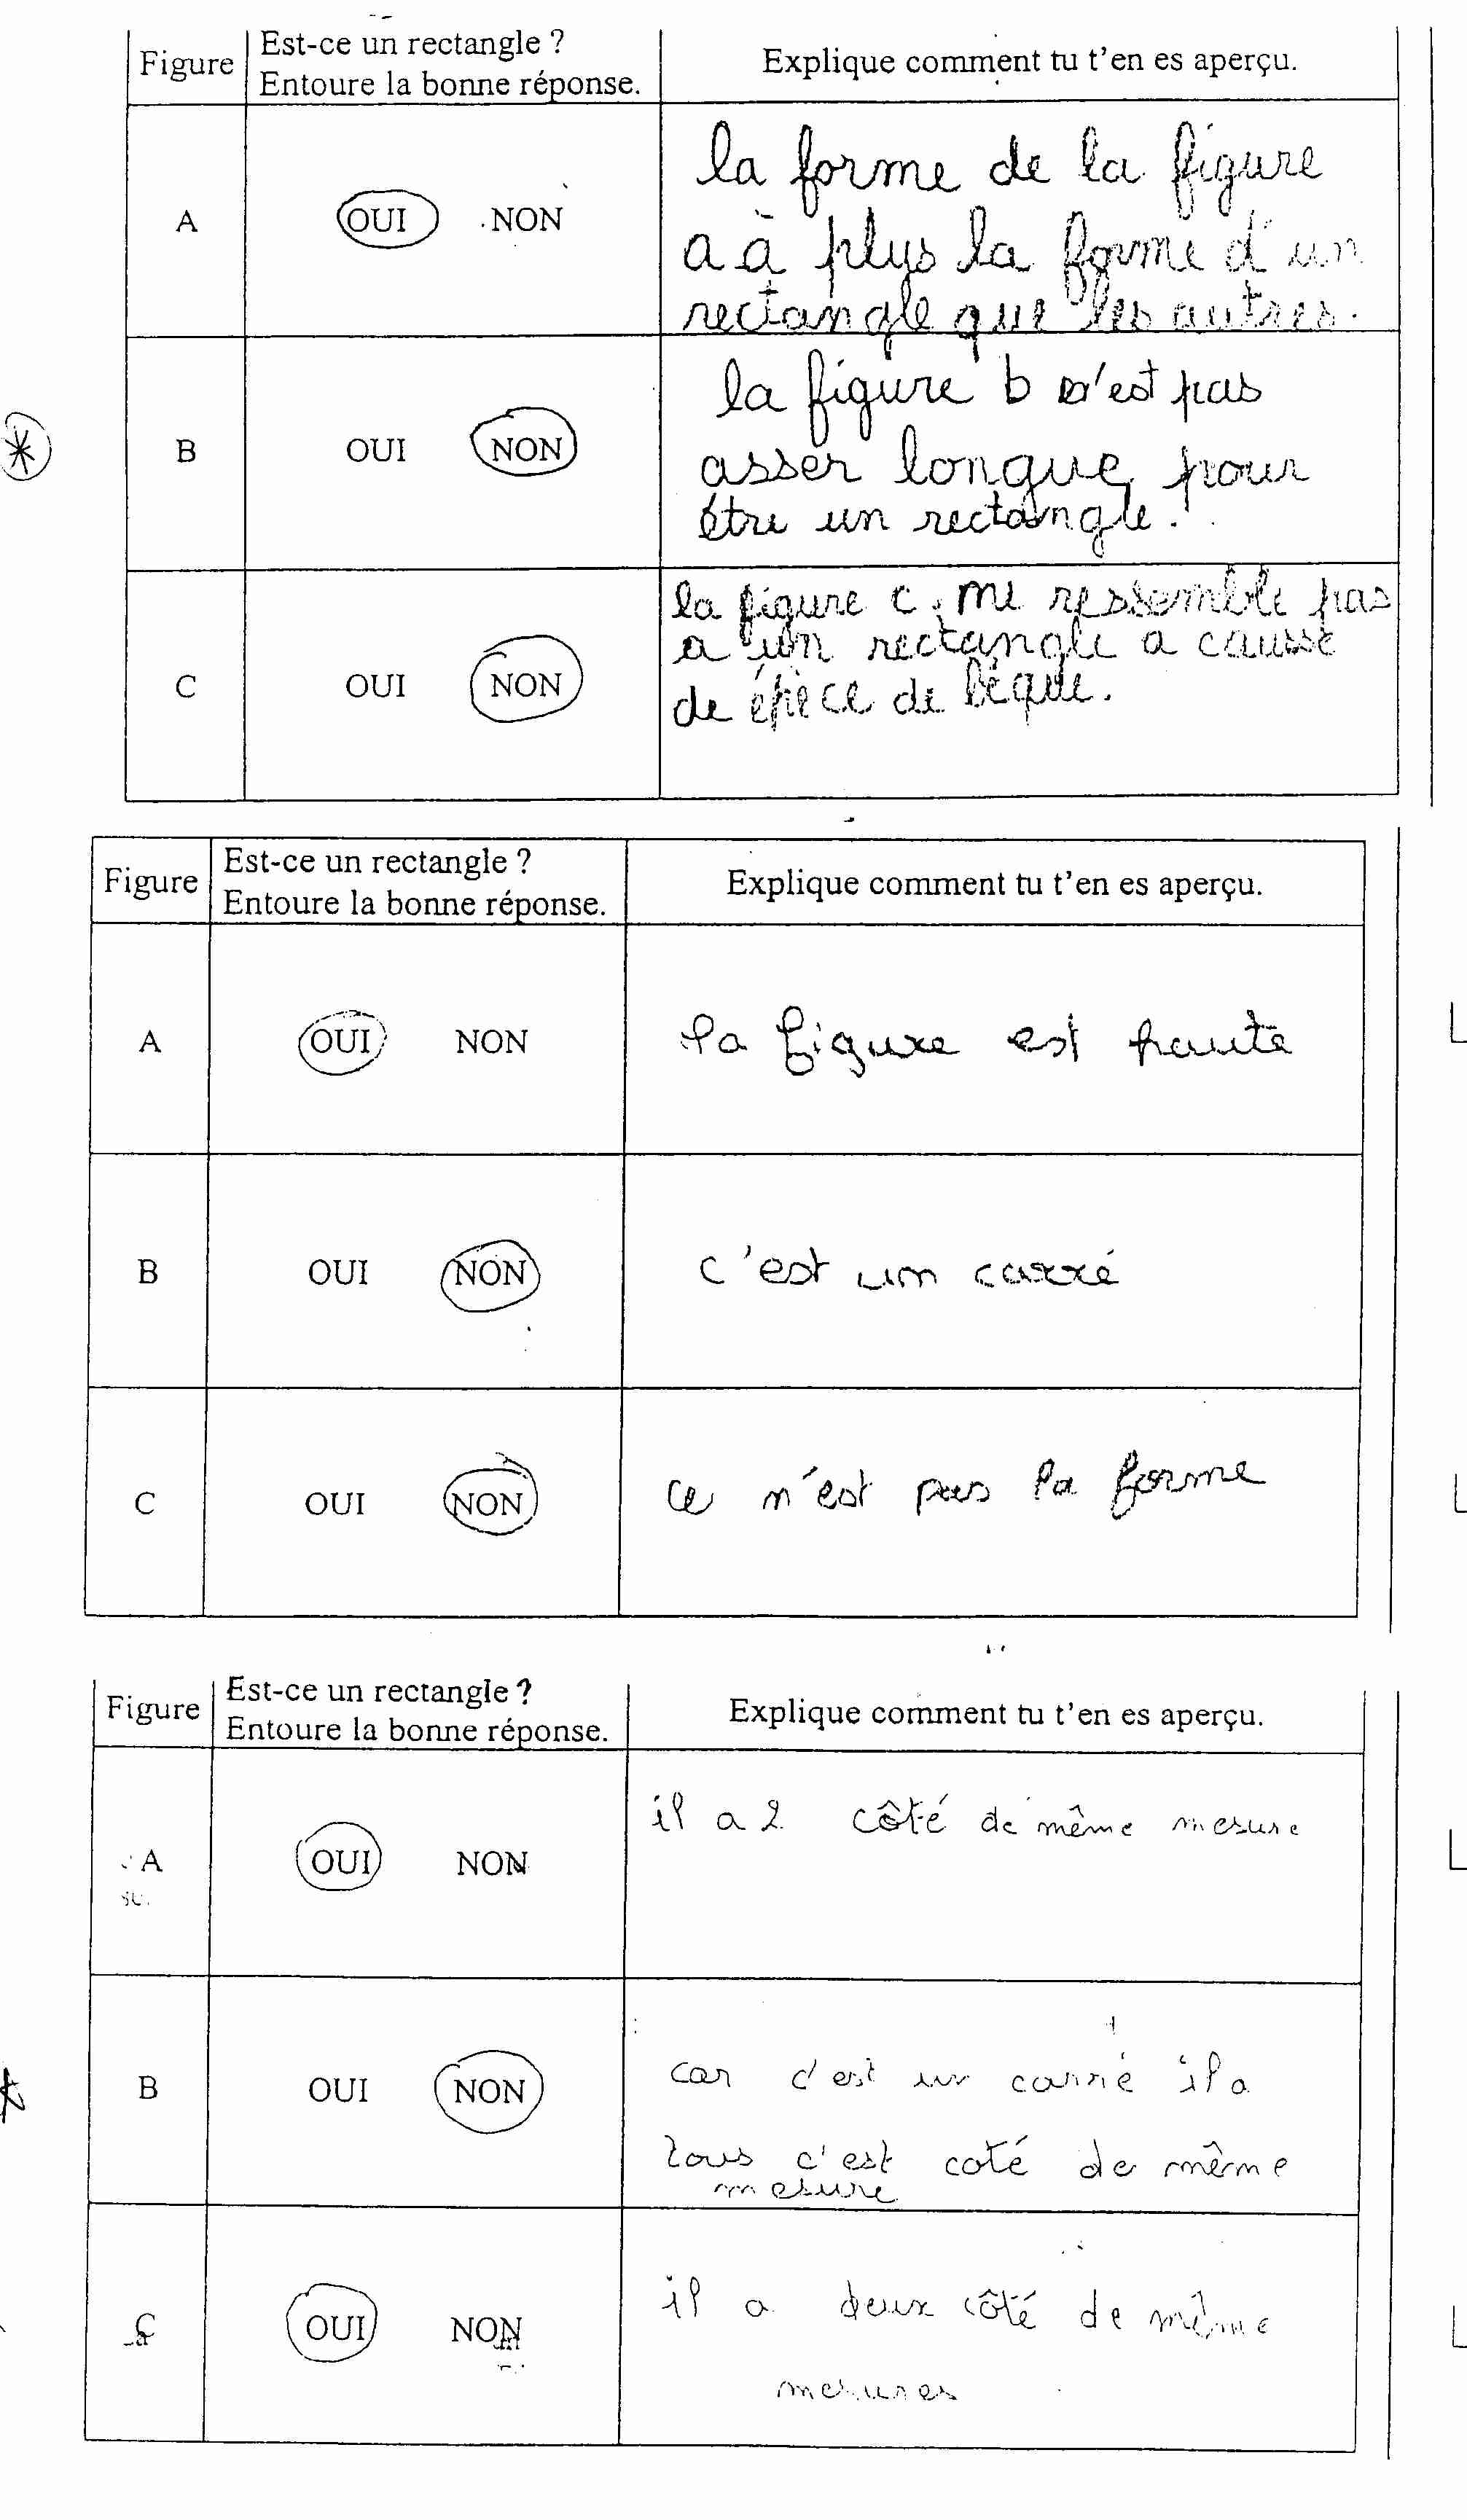 Figure
Est-ce un rectangle ?
Entoure la bonne réponse.
Explique comment tu t'en es aperçu.
A
OUI NON
la forme de la figure
a à plus la forme d'un
rectangle que les autres.
B
OUI NON
la figure b n'est pas
asser longue pour
être un rectangle.
C
OUI NON
la figure c ne ressemble pas
a un rectangle a causse
de épèce de
Figure
Est-ce un rectangle ?
Entoure la bonne réponse.
Explique comment tu t'en es aperçu.
A
OUI NON
la figure est haute
B
OUI NON
c'est un carré
C
OUI NON
ce n'est pas la forme
Figure
Est-ce un rectangle ?
Entoure la bonne réponse.
Explique comment tu t'en es aperçu.
A
OUI NON
il a 2 côté de même mesure
B
OUI NON
car c'est un carré il a
tous c'est coté de même
mesure
C
OUI NON
il a deux côté de même
mesures